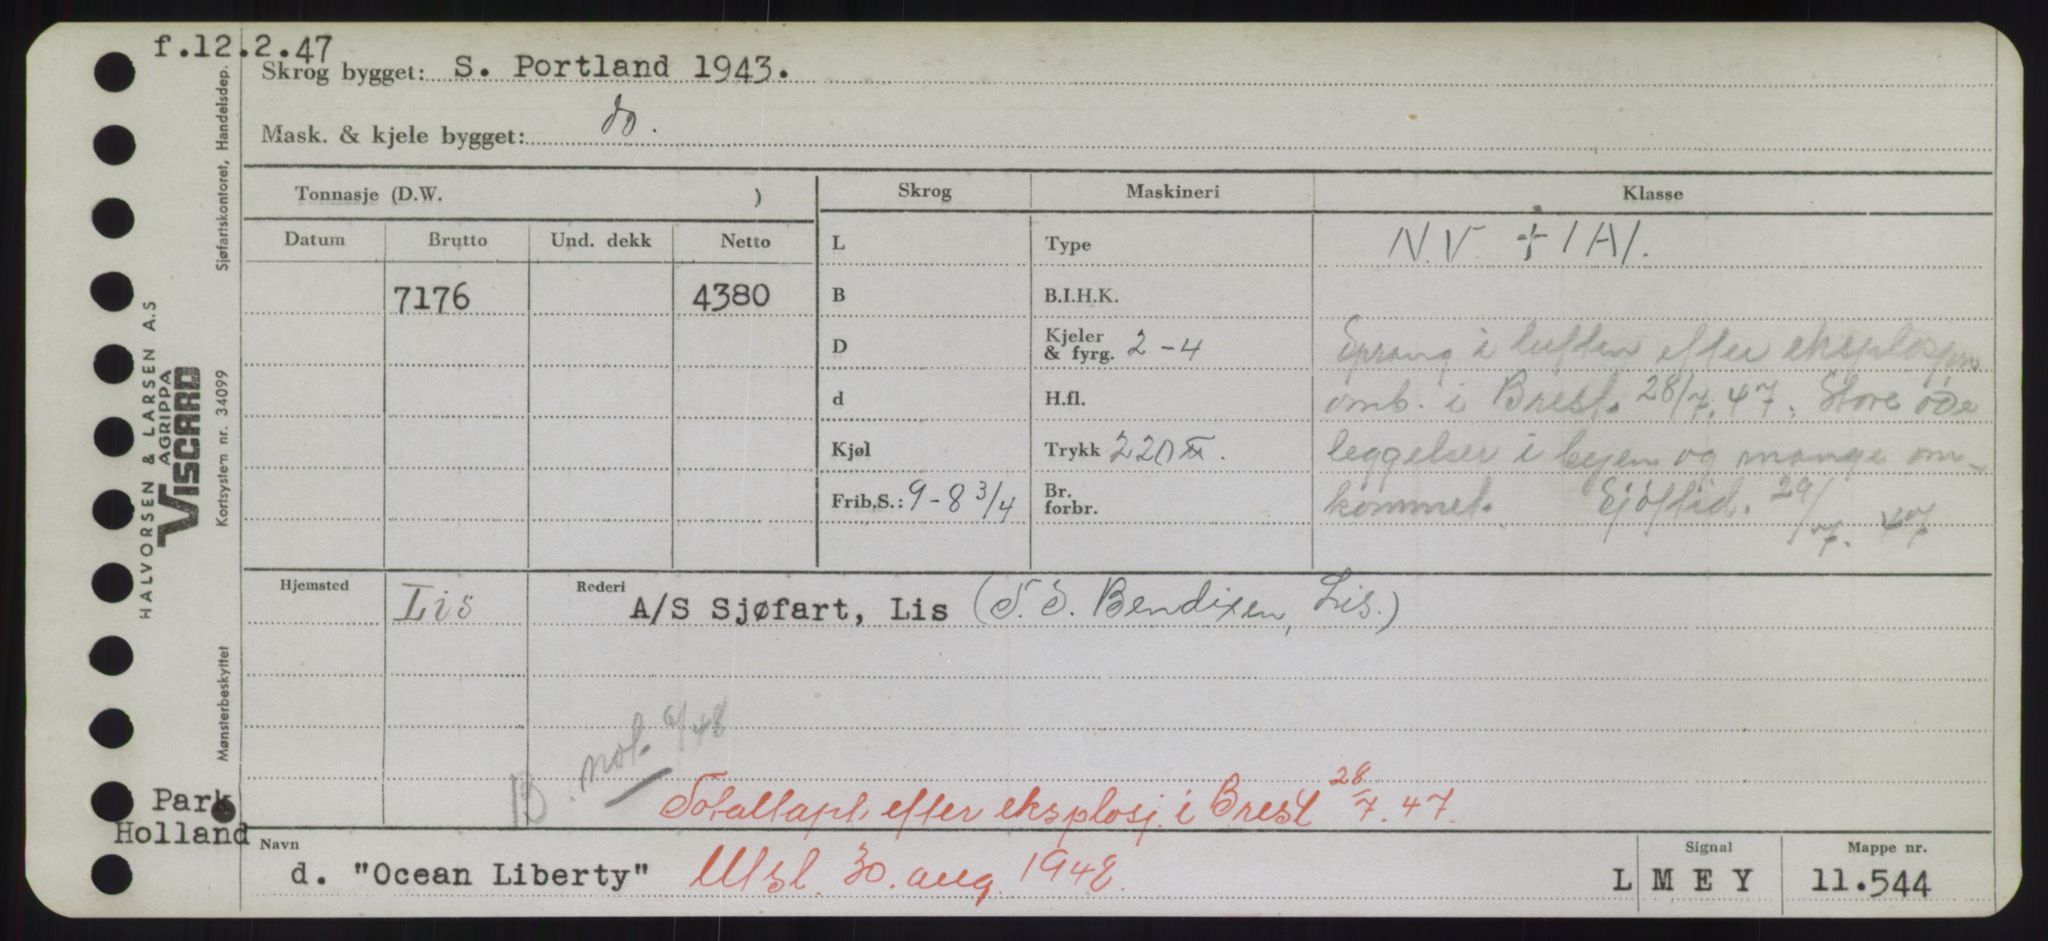 f.12.2.47
Skrog bygget: S. Portland 1943.
Mask. & kjele bygget: do.
Tonnasje (D.W. )
Datum Brutto Und. dekk Netto
7176 4380
Skrog Maskineri Klasse
L Type N.V. + 1A1.
B B.I.H.K.
D Kjeler & fyrg. 2-4
d H.fl.
Kjøl Trykk 220
Frib.S.: 9-8 3/4 Br. forbr.
Sprang i luften efter eksplosjon
omb. i Brest. 28/7.47. Store øde
leggelser i byen og mange om-
kommet. Sjøftid. 29/7. 47
Hjemsted Lis Rederi A/S Sjøfart, Lis (S. S. Bendixen, Lis.)
B not. 6/48
Totaltapt efter eksplosj. i Brest 28/7.47.
Park
Holland
Navn d. "Ocean Liberty" Utsl. 30. aug. 1948.
Signal L M E Y
Mappe nr. 11.544
HALVORSEN & LARSEN A.S
AGRIPPA
VISCARD
Sjøfartskontoret, Handelsdep.
Kortsystem nr. 34099
Mønsterbeskyttet